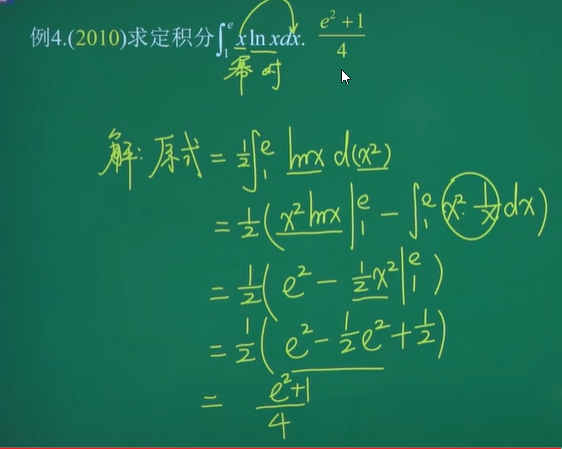 例4.(2010)求定积分∫₁ᵉ x ln xdx. (e²+1)/4
幂 对
解: 原式 = ½∫₁ᵉ lnx d(x²)
= ½(x² lnx |₁ᵉ − ∫₁ᵉ x²·(1/x) dx)
= ½(e² − ½x² |₁ᵉ)
= ½(e² − ½e² + ½)
= (e²+1)/4